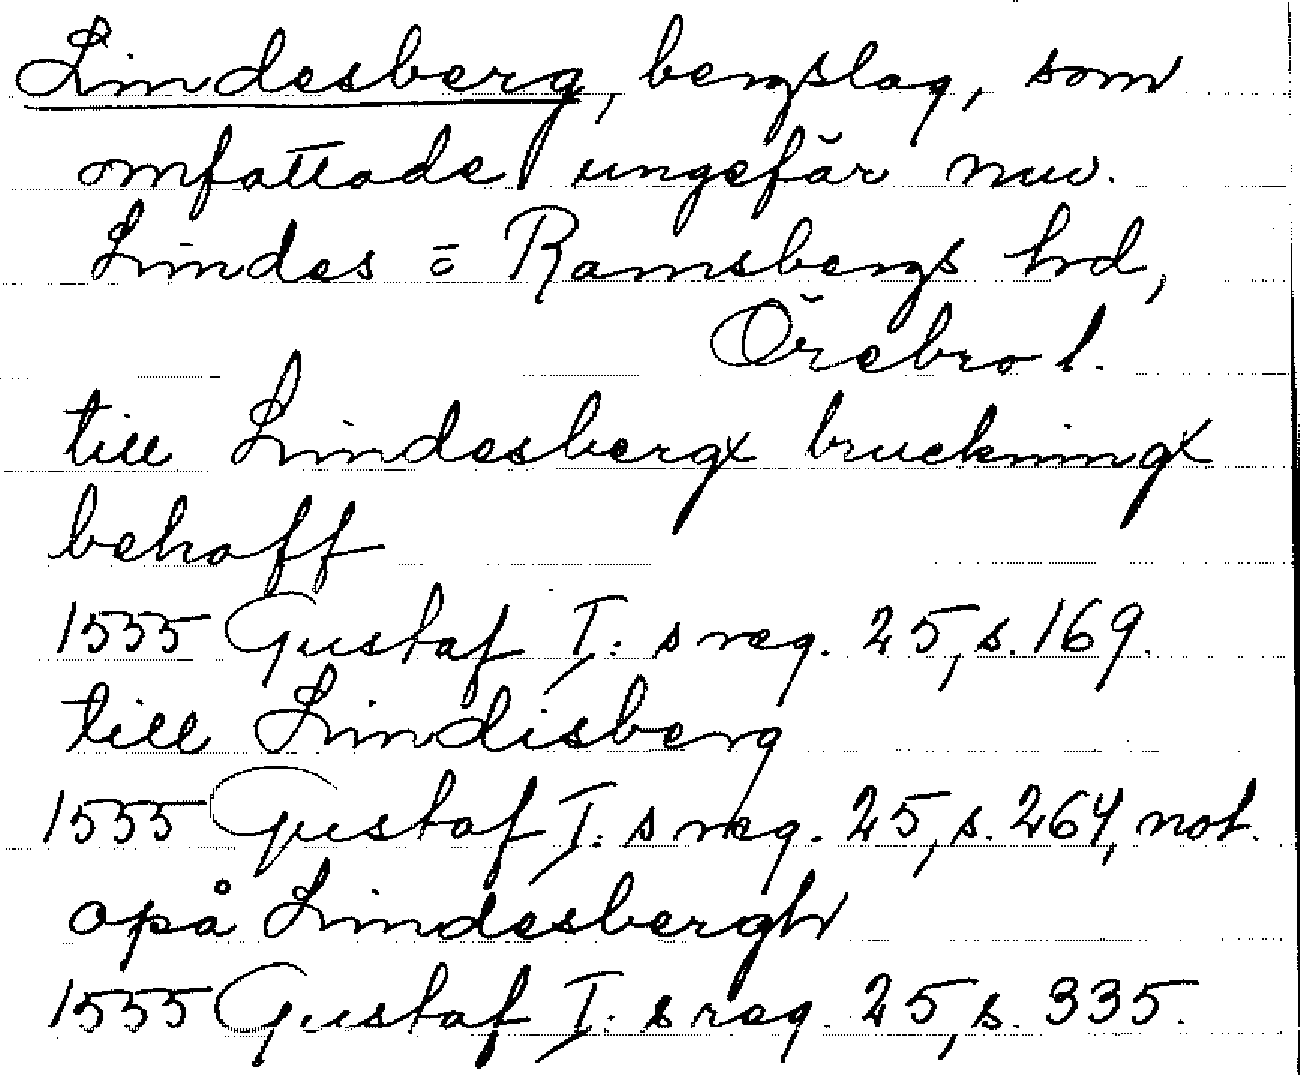 Lindesberg, bergslag, som
omfattade ungefär nuv.
Lindes o Ramsbergs hd,
Örebro l.
till Lindesbergx bruckningx
behoff
1555 Gustaf I:s reg. 25, s. 169.
till Lindisberg
1555 Gustaf I:s reg. 25, s. 264, not.
opå Lindesbergh
1555 Gustaf I:s reg. 25, s. 335.